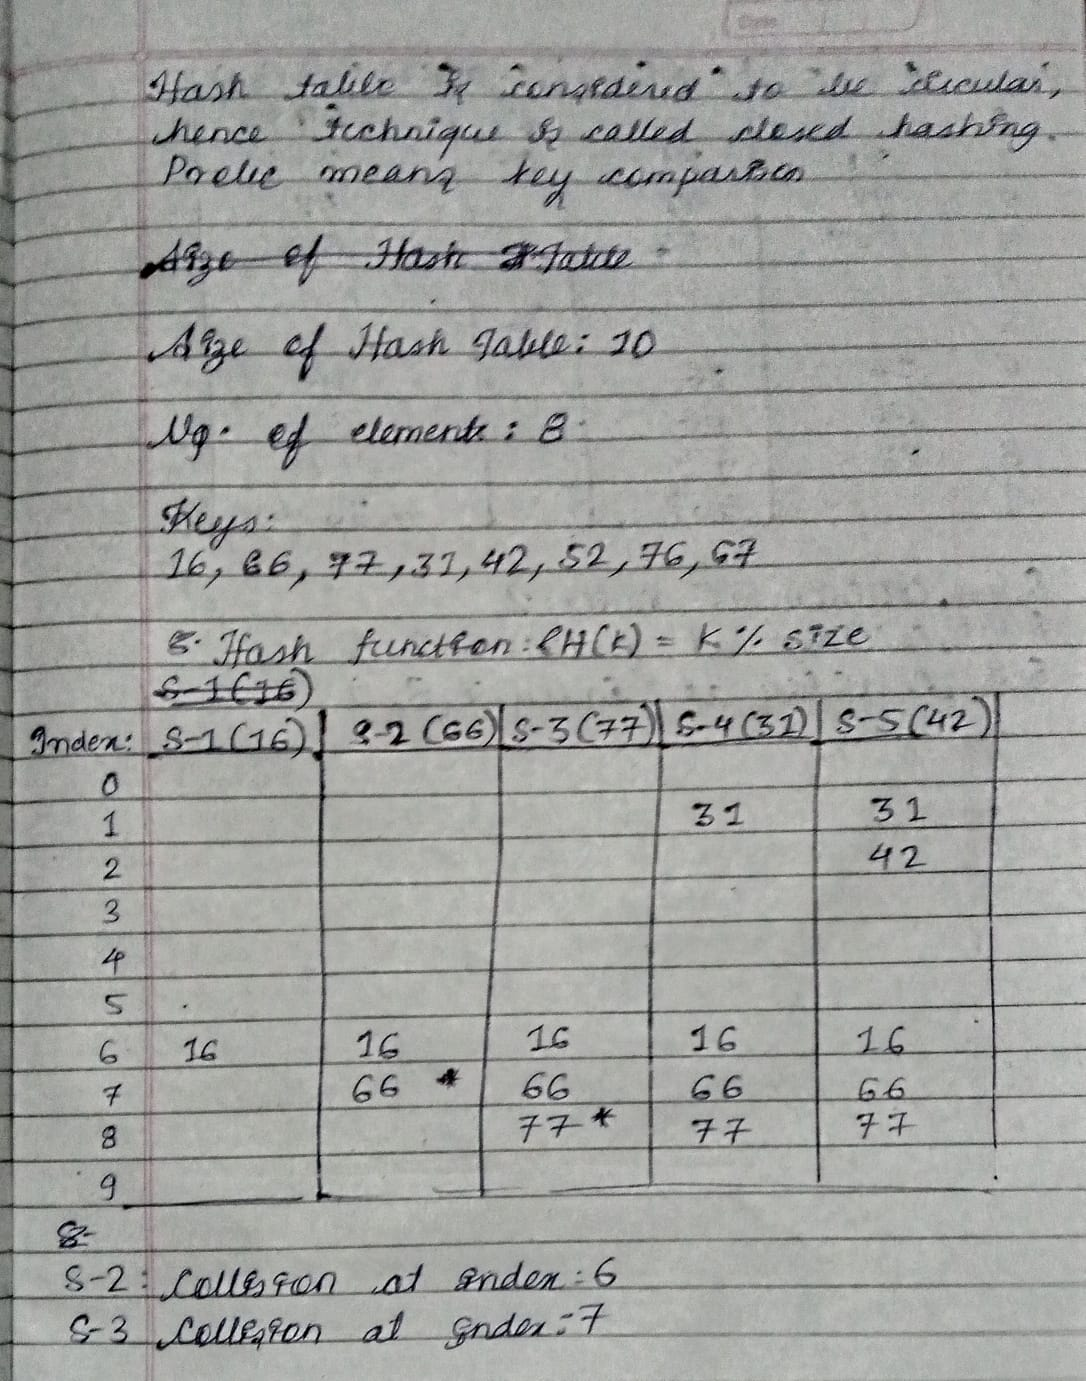 Hash table is considered to be circular,
hence technique is called closed hashing.
Probe means key comparison
Size of Hash Table
Size of Hash Table: 10
No. of elements: 8
Keys:
16, 66, 77, 31, 42, 52, 76, 67
Hash function: H(k) = K % size
S-1(16)
Index: S-1(16) S-2(66) S-3(77) S-4(31) S-5(42)
0
1 31 31
2 42
3
4
5
6 16 16 16 16 16
7 66 * 66 66 66
8 77* 77 77
9
S-2: Collision at index: 6
S-3 Collision at index: 7